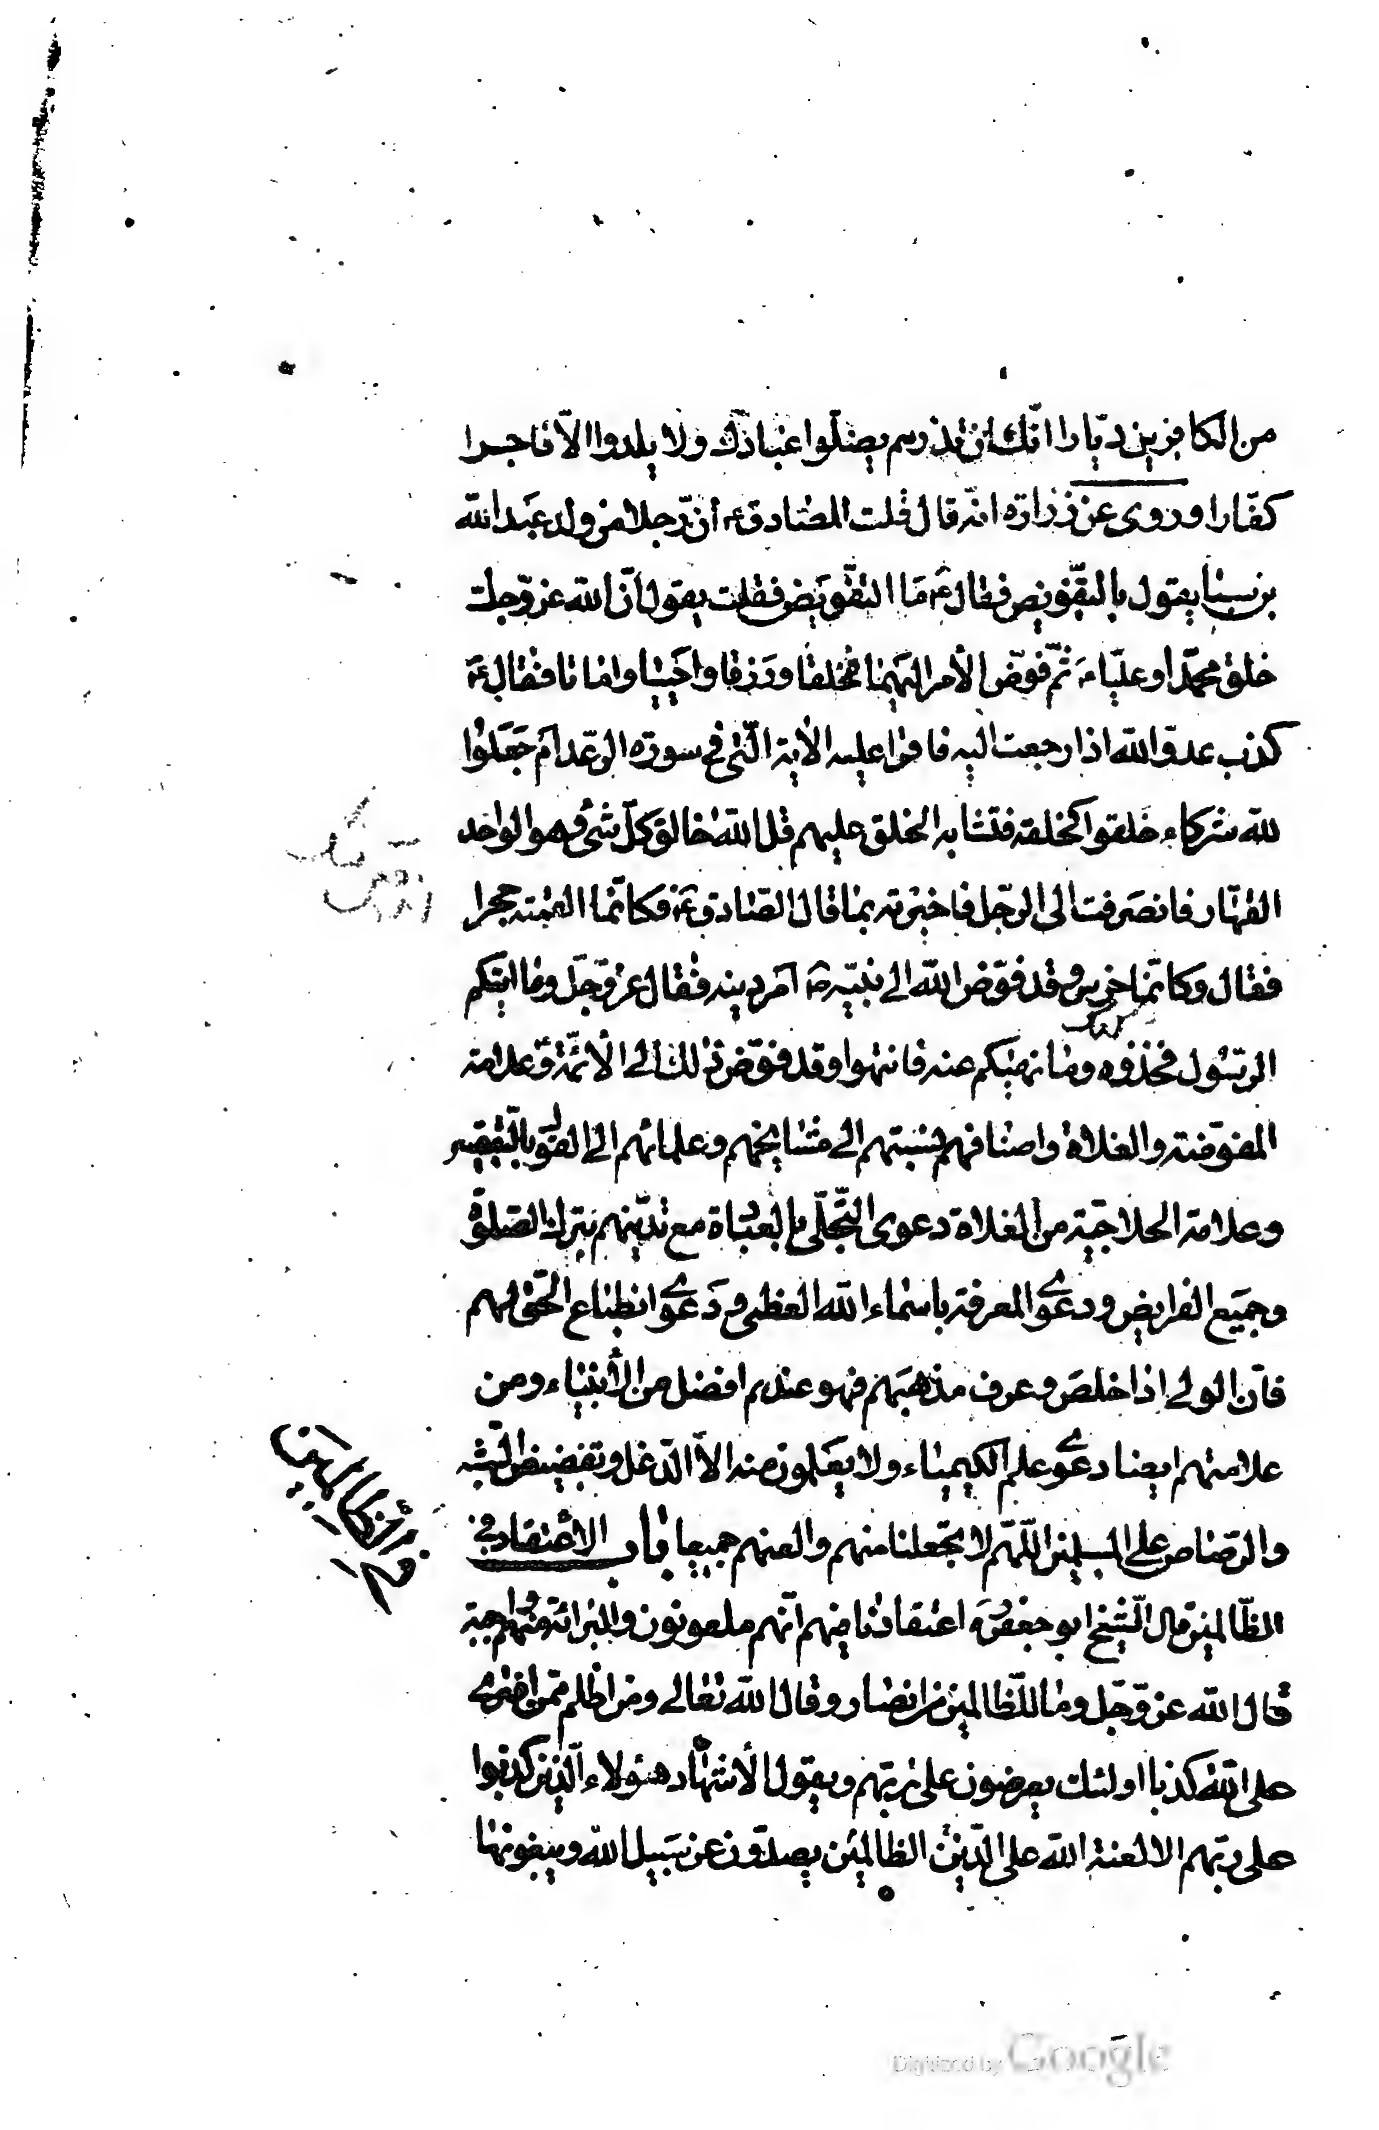 من الكافرين ديّارا انّك ان تذرهم يضلّوا عبادك ولا يلدوا الّا فاجرا
كفّارا وروى عن زرارة انّه قال قلت للصّادق ع انّ رجلا من ولد عبد الله
بن سبا يقول بالتفّويض فقال ع ما التفّويض فقلت يقول انّ الله عزّ وجلّ
خلق محمّدا وعليّا ع ثمّ فوّض الأمر اليهما فخلقا ورزقا واحييا واماتا فقال ع
كذب عدوّ الله اذا رجعت اليه فاقرا عليه الأية الّتى في سورة الرّعد ام جعلوا
لله شركاء خلقوا كخلقه فتشابه الخلق عليهم قل الله خالق كلّ شئ وهو الواحد
القهّار فانصرفت الى الرّجل فاخبرته بما قال الصّادق ع فكانّما القمته حجرا
فقال وكانّما خرس وقد فوّض الله الى نبيّه ص امر دينه فقال عزّ وجلّ وما اتيكم
الرّسول فخذوه وما نهيكم عنه فانتهوا وقد فوّض ذلك الى الأئمّة وعلامة
المفوّضة والغلاة واصنافهم نسبتهم الى مشايخهم وعلمائهم الى القول بالتّقصير
وعلامة الحلاجيّة من الغلاة دعوى التّجلّي بالعبادة مع تديّنهم بترك الصّلوة
وجميع الفرايض ودعوى المعرفة باسماء الله العظمى ودعوى انطباع الحقّ لهم
فانّ الولي اذا خلص وعرف مذهبهم فهو عندهم افضل من الأنبياء ومن
علامتهم ايضا دعوى علم الكيمياء ولا يعلمون منه الّا الدّغل وتفضيض الشّبه
والرّصاص على المسلمين اللّهمّ لا تجعلنا منهم والعنهم جميعا باب الأعتقاد في
الظّالمين قال الشّيخ ابو جعفر ره اعتقادنا فيهم انّهم ملعونون والبرائة منهم واجبة
قال الله عزّ وجلّ وما للظّالمين من انصار وقال الله تعالى ومن اظلم ممّن افترى
على الله كذبا اولئك يعرضون على ربّهم ويقول الأشهاد هؤلاء الّذين كذبوا
على ربّهم الا لعنة الله على الظالمين الّذين يصدّون عن سبيل الله ويبغونها
في الظالمين
Digitized by Google